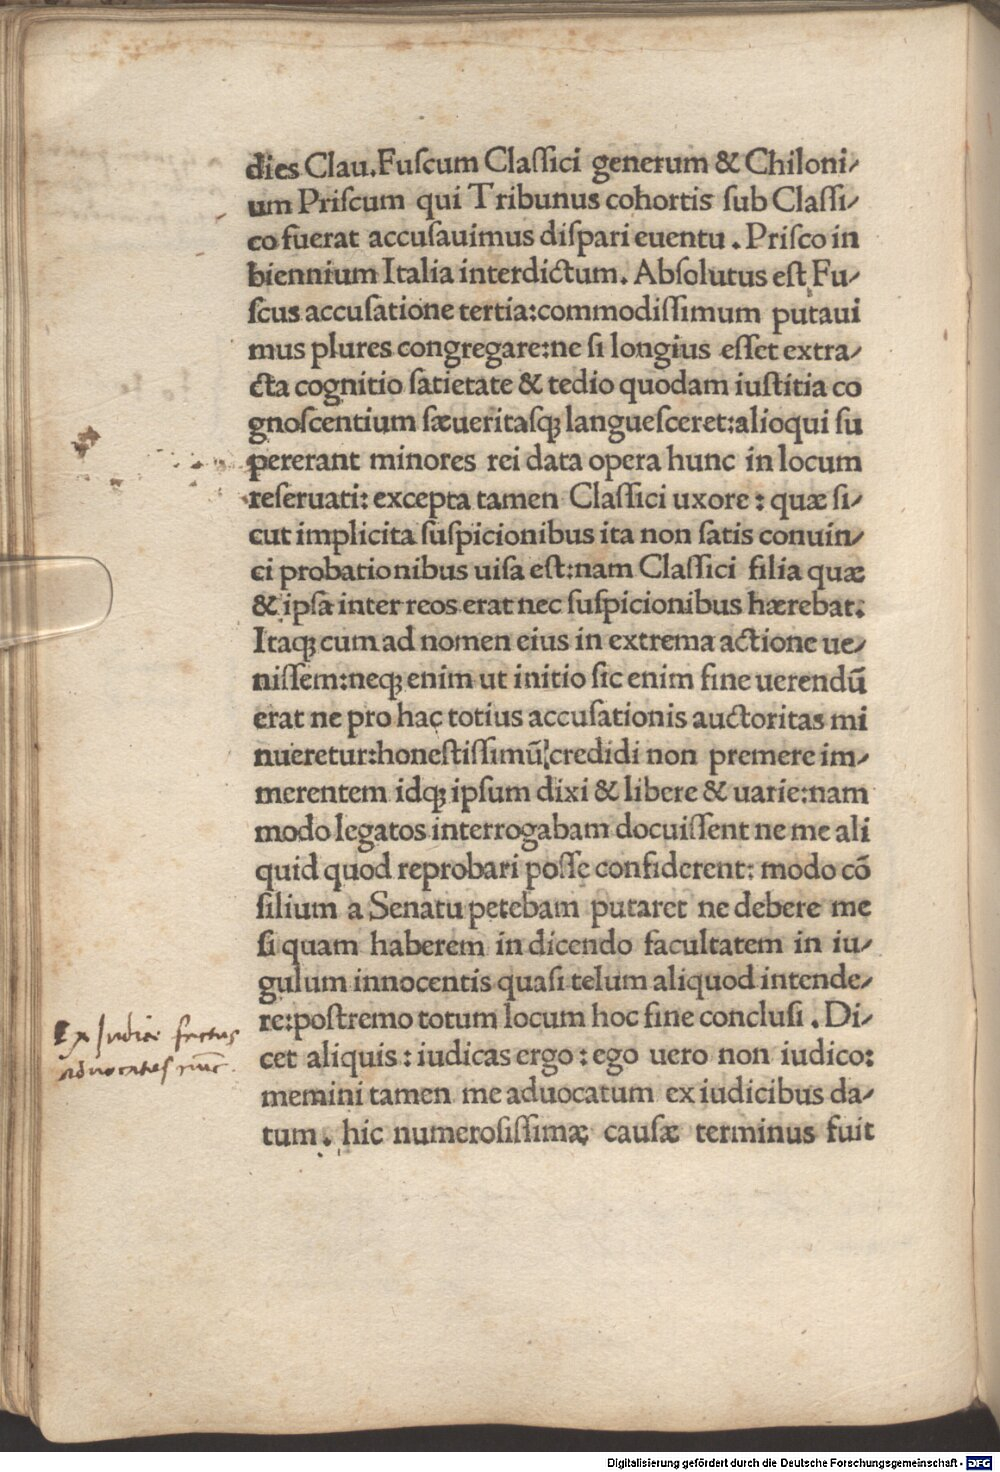 dies Clau.Fuſcum Claſſici generum & Chiloni⸗
um Priſcum qui Tribunus cohortis ſub Claſſi⸗
co fuerat accuſauimus diſpari euentu . Priſco in
biennium Italia interdictum. Abſolutus eſt Fu⸗
ſcus accuſatione tertia:commodiſſimum putaui
mus plures congregare:ne ſi longius eſſet extra⸗
cta cognitio ſatietate & tedio quodam iuſtitia co
gnoſcentium ſæueritaſq; langueſceret:alioqui ſu
pererant minores rei data opera hunc in locum
reſeruati: excepta tamen Claſſici uxore : quæ ſi⸗
cut implicita ſuſpicionibus ita non ſatis conuin⸗
ci probationibus uiſa eſt:nam Claſſici filia quæ
& ipſa inter reos erat nec ſuſpicionibus hærebat.
Itaq; cum ad nomen eius in extrema actione ue⸗
niſſem:neq; enim ut initio ſic enim fine uerendū
erat ne pro hac totius accuſationis auctoritas mi
nueretur:honeſtiſſimū credidi non premere im⸗
merentem idq; ipſum dixi & libere & uarie:nam
modo legatos interrogabam docuiſſent ne me ali
quid quod reprobari poſſe confiderent: modo cō
ſilium a Senatu petebam putaret ne debere me
ſi quam haberem in dicendo facultatem in iu⸗
gulum innocentis quaſi telum aliquod intende⸗
re:poſtremo totum locum hoc fine concluſi . Di⸗
cet aliquis : iudicas ergo : ego uero non iudico:
memini tamen me aduocatum ex iudicibus da⸗
tum . hic numeroſiſſimæ cauſæ terminus fuit
Ex Iudice factus
aduocatus
Digitalisierung gefördert durch die Deutsche Forschungsgemeinschaft - DFG